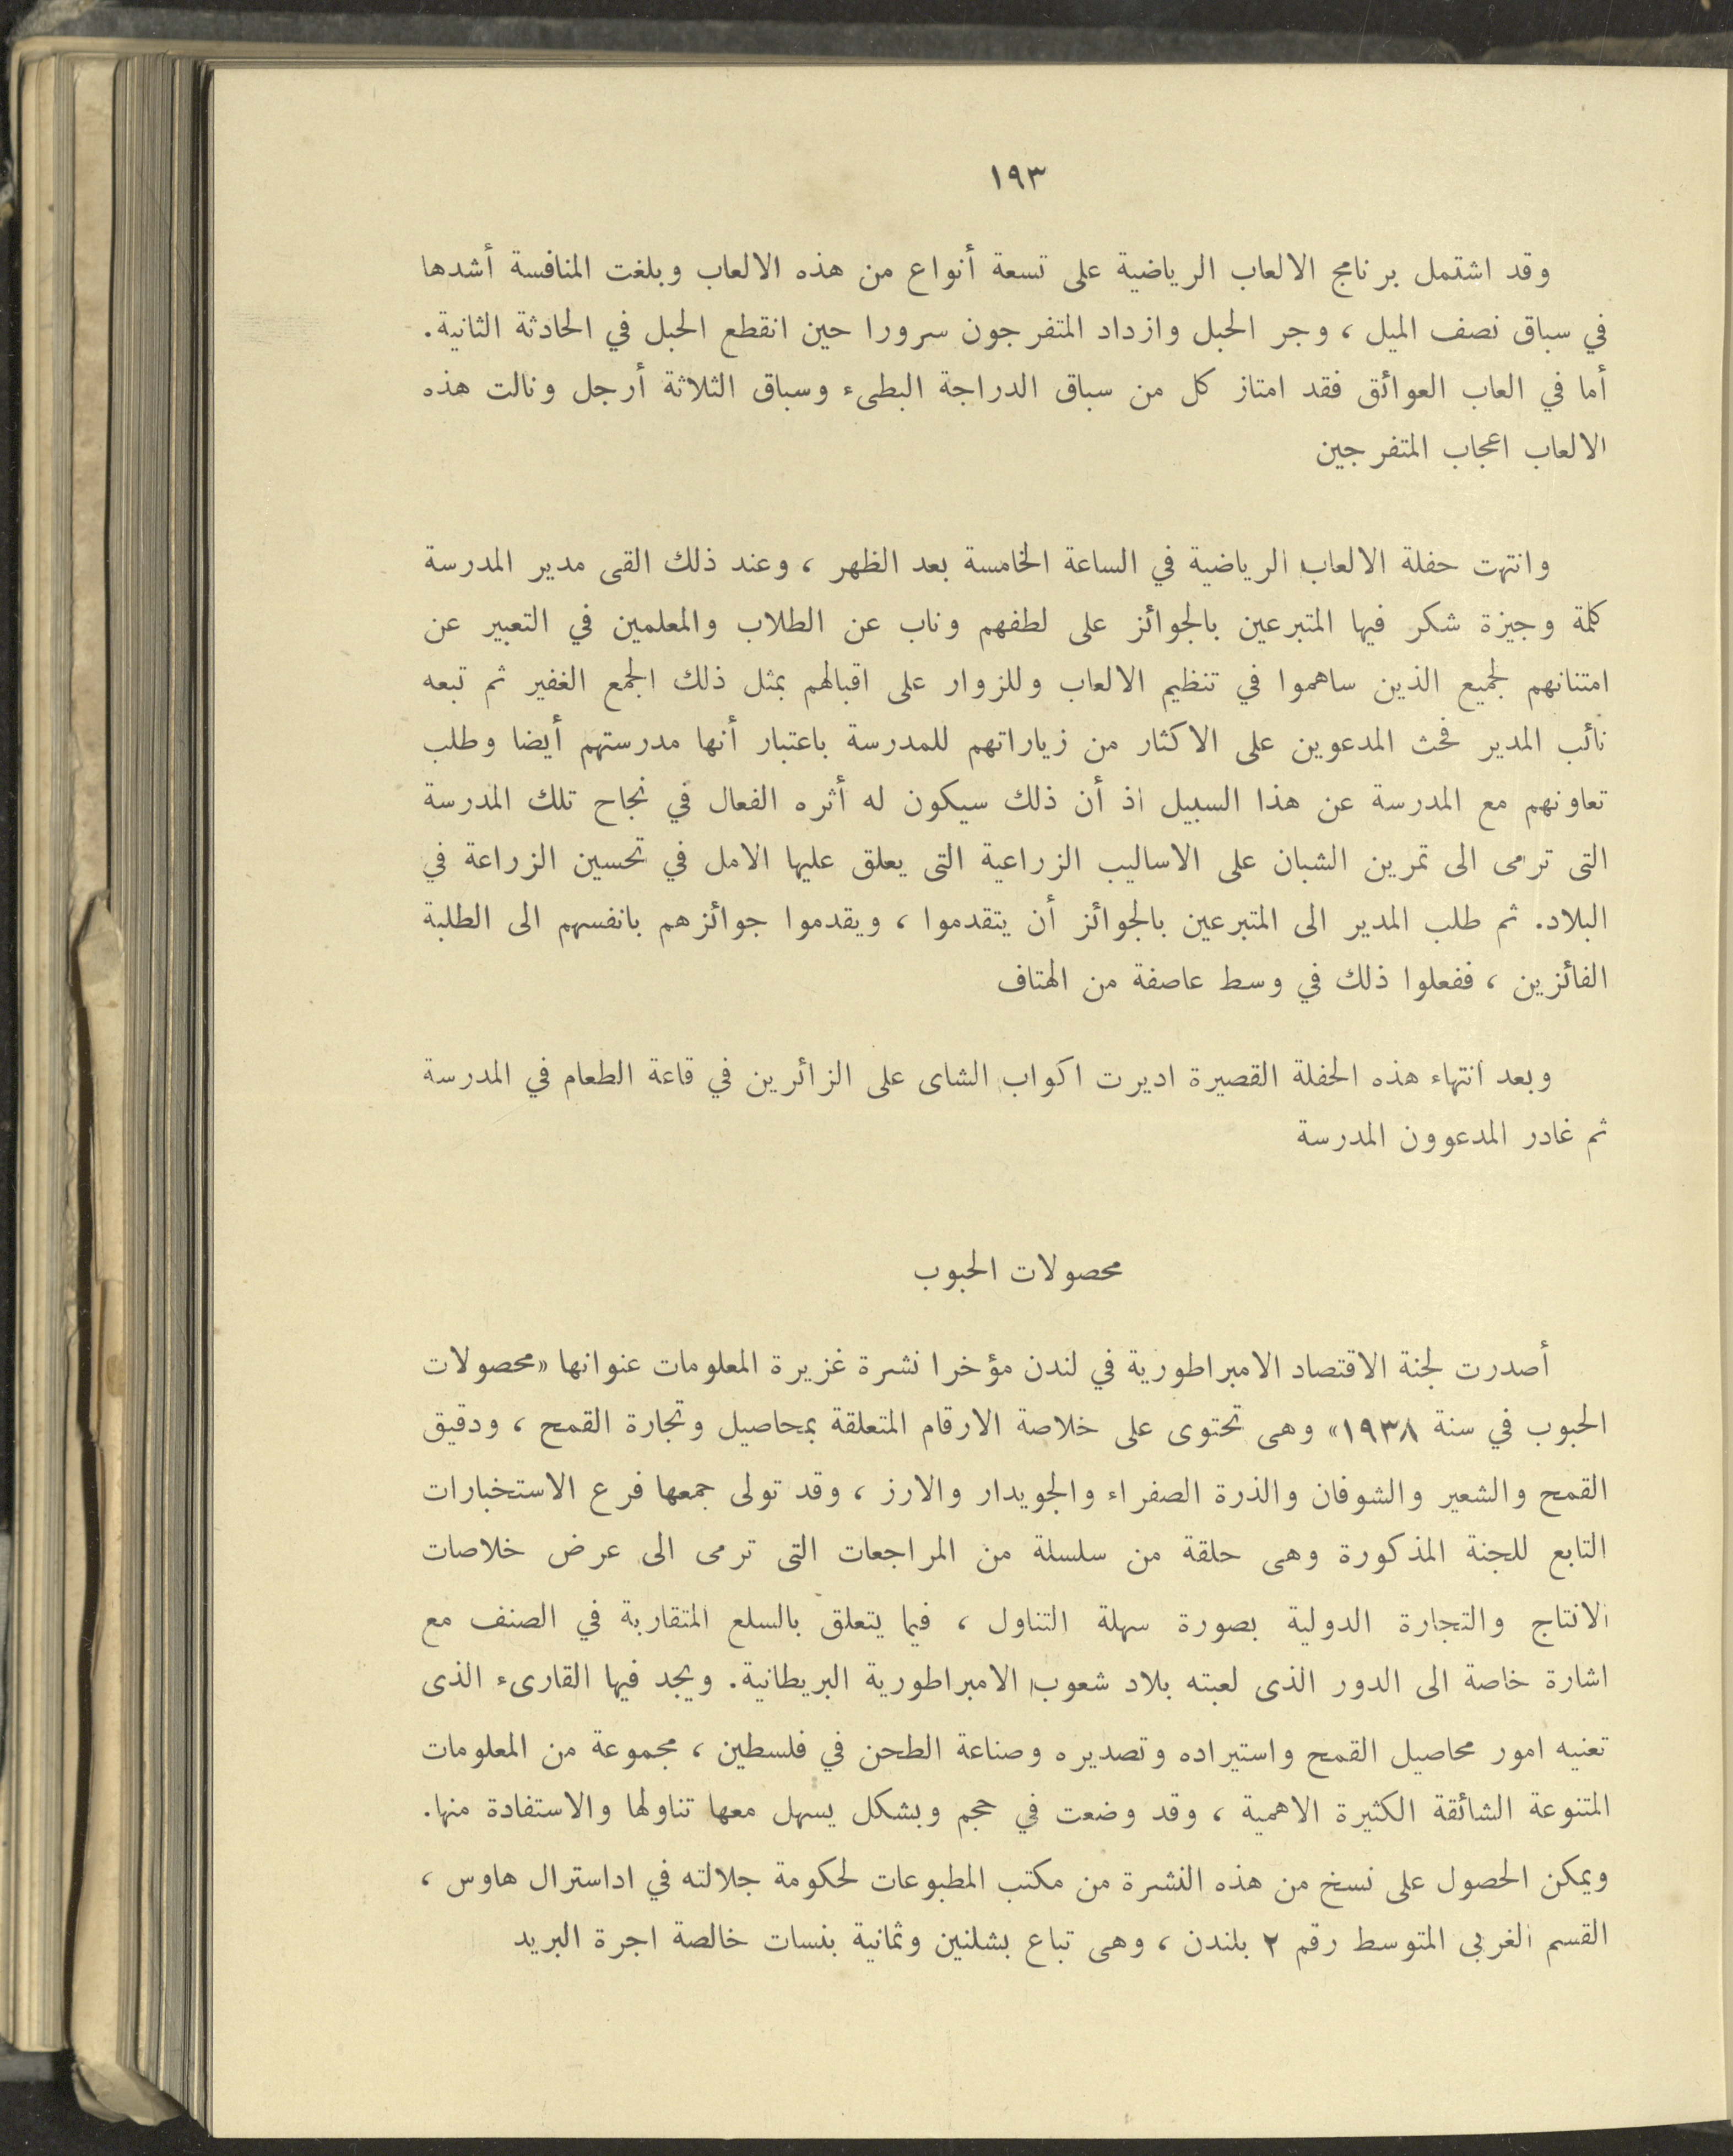 ١٩٣
وقد اشتمل برنامج الالعاب الرياضية على تسعة أنواع من هذه الالعاب وبلغت المنافسة أشدها
في سباق نصف الميل ، وجر الحبل وازداد المتفرجون سرورا حين انقطع الحبل في الحادثة الثانية.
أما في العاب العوائق فقد امتاز كل من سباق الدراجة البطىء وسباق الثلاثة أرجل ونالت هذه
الالعاب اعجاب المتفرجين
وانتهت حفلة الالعاب الرياضية في الساعة الخامسة بعد الظهر ، وعند ذلك القى مدير المدرسة
كلمة وجيزة شكر فيها المتبرعين بالجوائز على لطفهم وناب عن الطلاب والمعلمين في التعبير عن
امتنانهم لجميع الذين ساهموا في تنظيم الالعاب وللزوار على اقبالهم بمثل ذلك الجمع الغفير ثم تبعه
نائب المدير فحث المدعوين على الاكثار من زياراتهم للمدرسة باعتبار أنها مدرستهم أيضا وطلب
تعاونهم مع المدرسة عن هذا السبيل اذ أن ذلك سيكون له أثره الفعال في نجاح تلك المدرسة
التى ترمى الى تمرين الشبان على الاساليب الزراعية التى يعلق عليها الامل في تحسين الزراعة في
البلاد. ثم طلب المدير الى المتبرعين بالجوائز أن يتقدموا ، ويقدموا جوائزهم بانفسهم الى الطلبة
الفائزين ، ففعلوا ذلك في وسط عاصفة من الهتاف
وبعد انتهاء هذه الحفلة القصيرة اديرت اكواب الشاى على الزائرين في قاعة الطعام في المدرسة
ثم غادر المدعوون المدرسة
محصولات الحبوب
أصدرت لجنة الاقتصاد الامبراطورية في لندن مؤخرا نشرة غزيرة المعلومات عنوانها «محصولات
الحبوب في سنة ١٩٣٨» وهى تحتوى على خلاصة الارقام المتعلقة بمحاصيل وتجارة القمح ، ودقيق
القمح والشعير والشوفان والذرة الصفراء والجويدار والارز ، وقد تولى جمعها فرع الاستخبارات
التابع للجنة المذكورة وهى حلقة من سلسلة من المراجعات التى ترمى الى عرض خلاصات
الانتاج والتجارة الدولية بصورة سهلة التناول ، فيما يتعلق بالسلع المتقاربة في الصنف مع
اشارة خاصة الى الدور الذى لعبته بلاد شعوب الامبراطورية البريطانية. ويجد فيها القارىء الذى
تعنيه امور محاصيل القمح واستيراده وتصديره وصناعة الطحن في فلسطين ، مجموعة من المعلومات
المتنوعة الشائقة الكثيرة الاهمية ، وقد وضعت في حجم وبشكل يسهل معها تناولها والاستفادة منها.
ويمكن الحصول على نسخ من هذه النشرة من مكتب المطبوعات لحكومة جلالته في اداسترال هاوس ،
القسم الغربى المتوسط رقم ٢ بلندن ، وهى تباع بشلنين وثمانية بنسات خالصة اجرة البريد